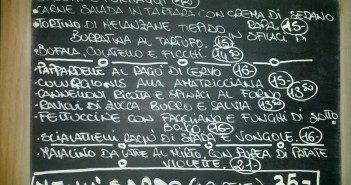 CARNE SALADA IN TARTARA CON CREMA DI SEDANO RAPA 15.-
TORTINO DI MELANZANE TIEPIDO
BURRATINA AL TARTUFO 15.- IN SFILACCI
BUFALA, CULATELLO E FICCHI 14.50
PAPPARDELLE AL RAGÙ DI CERVO 16.-
CULURGIONIS ALLA AMATRICIANA 15.-
CANNELLONI RICOTTA E SPINACI AL FORNO 13.50
RAVIOLI DI ZUCCA BURRO E SALVIA 13.50
FETTUCCINE CON FAGGIANO E FUNGHI DI SOTTO
BOSCO 16.-
SCIALATIELLI RAGÙ DI SPADA E VONGOLE 16.-
MAIALINO DA LATTE AL MIRTO, CON PUREA DI PATATE
VIOLETTE 21
25.-